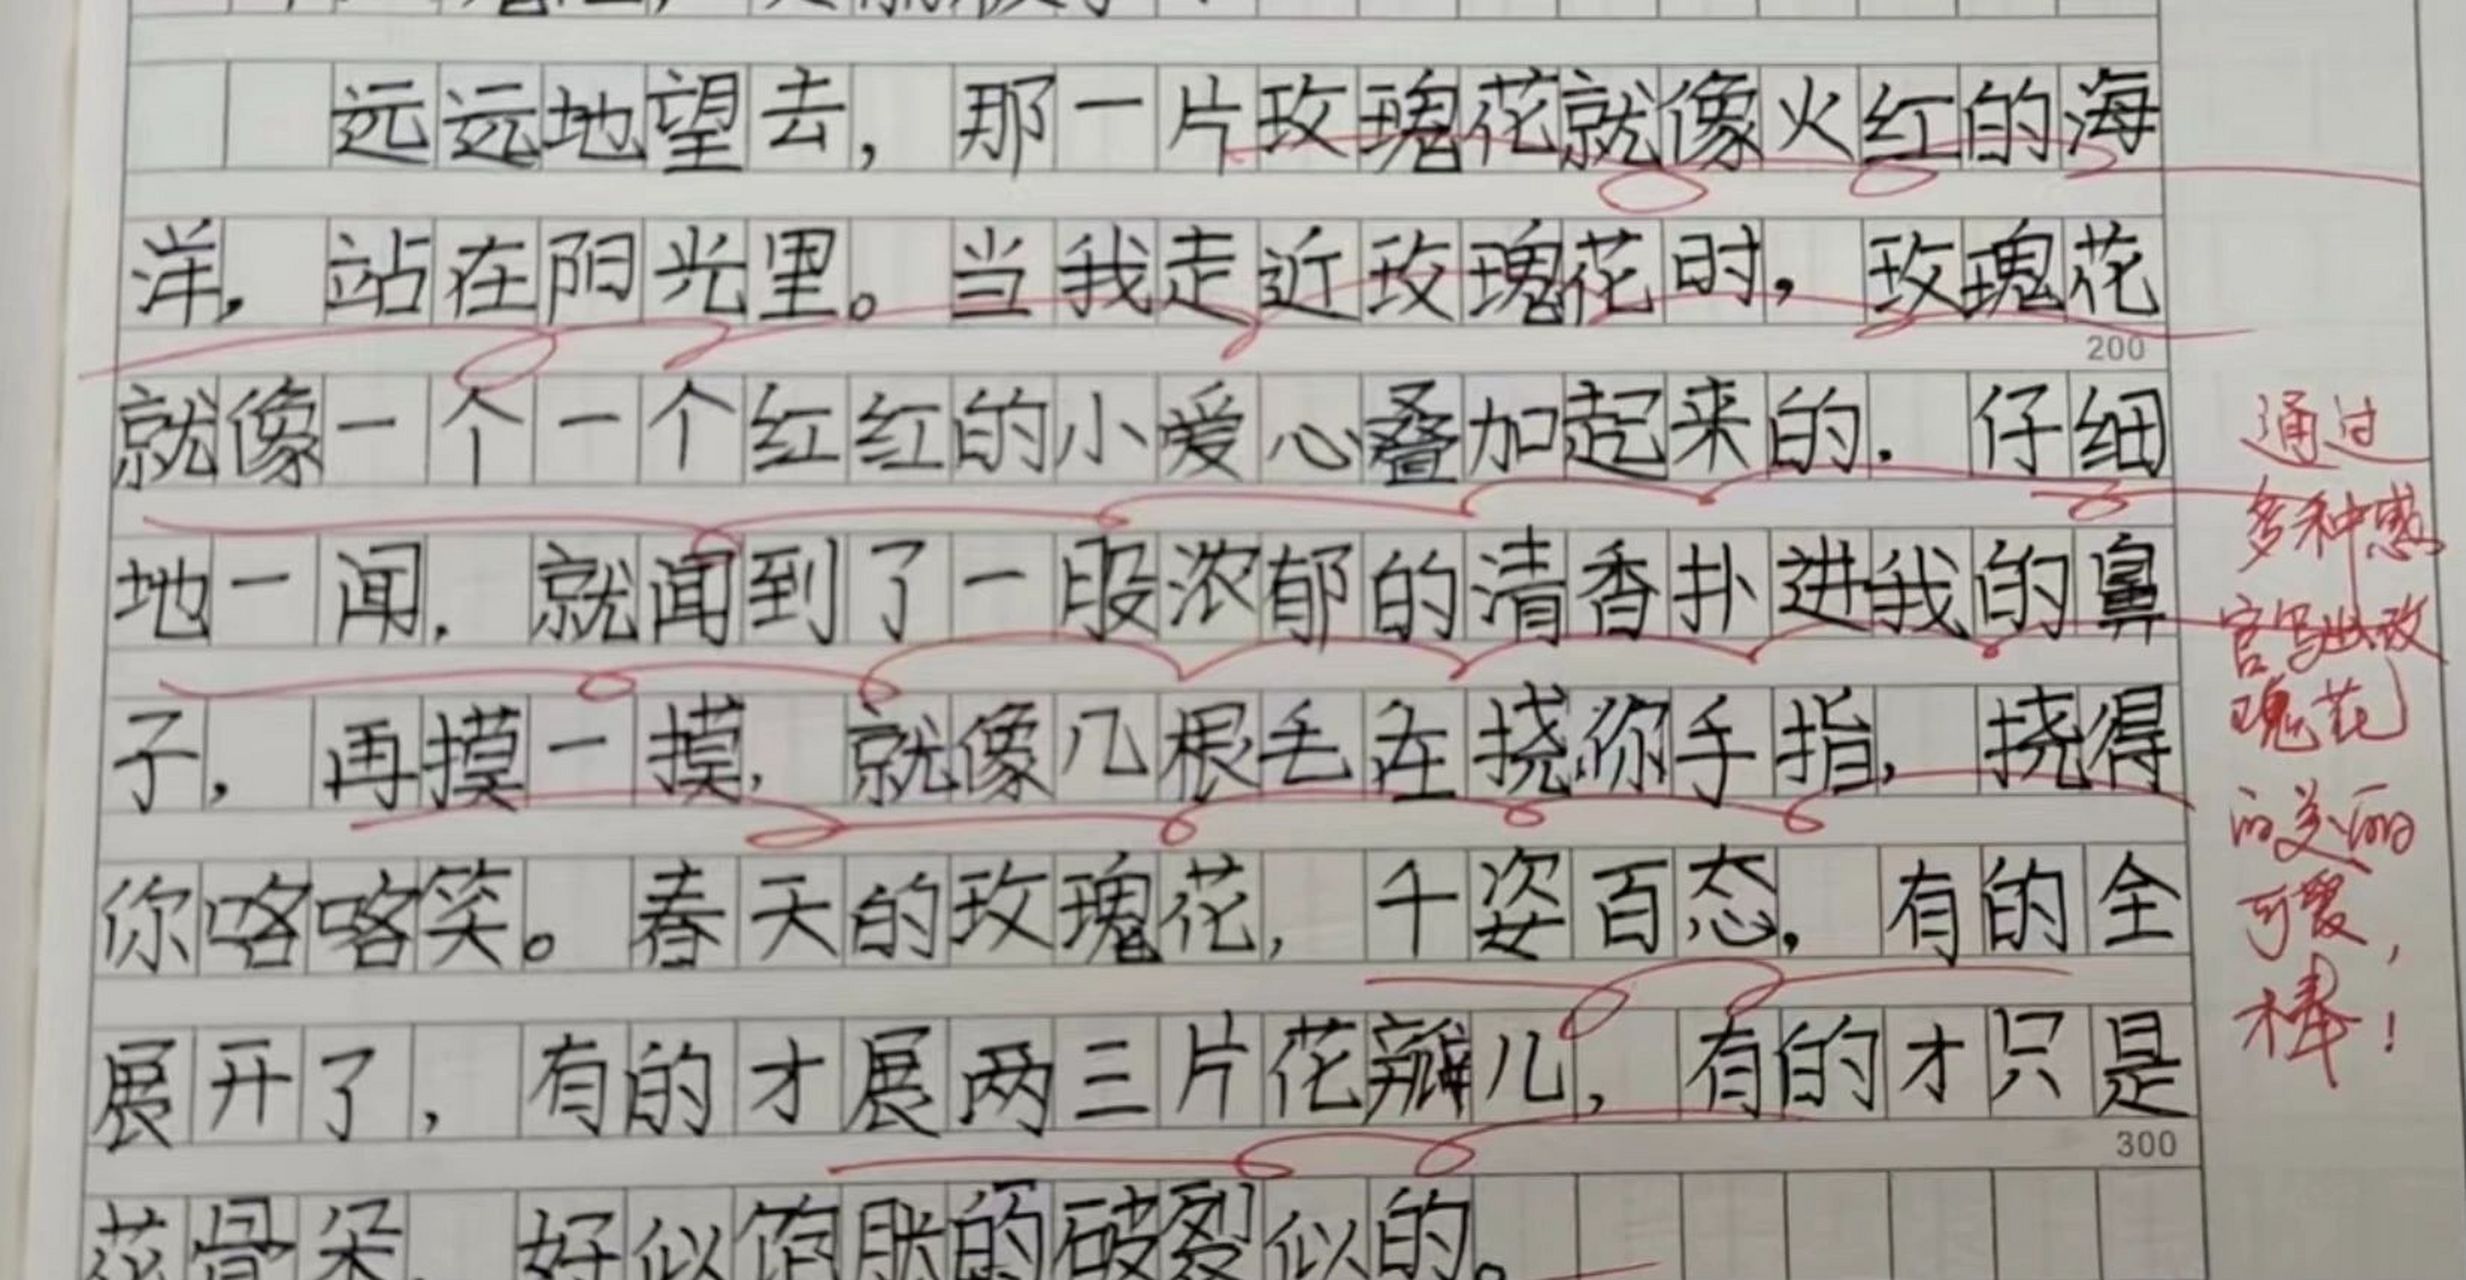 远远地望去，那一片玫瑰花就像火红的海
洋，站在阳光里。当我走近玫瑰花时，玫瑰花
200
就像一个一个红红的小爱心叠加起来的．仔细
地一闻．就闻到了一股浓郁的清香扑进我的鼻
子，再摸一摸，就像几根毛在挠你手指，挠得
你咯咯笑。春天的玫瑰花，千姿百态，有的全
展开了，有的才展两三片花瓣儿，有的才只是
300
花骨朵，好似饱胀的破裂似的。
通过
多种感
官写出玫
瑰花
的美丽
可爱，
棒！